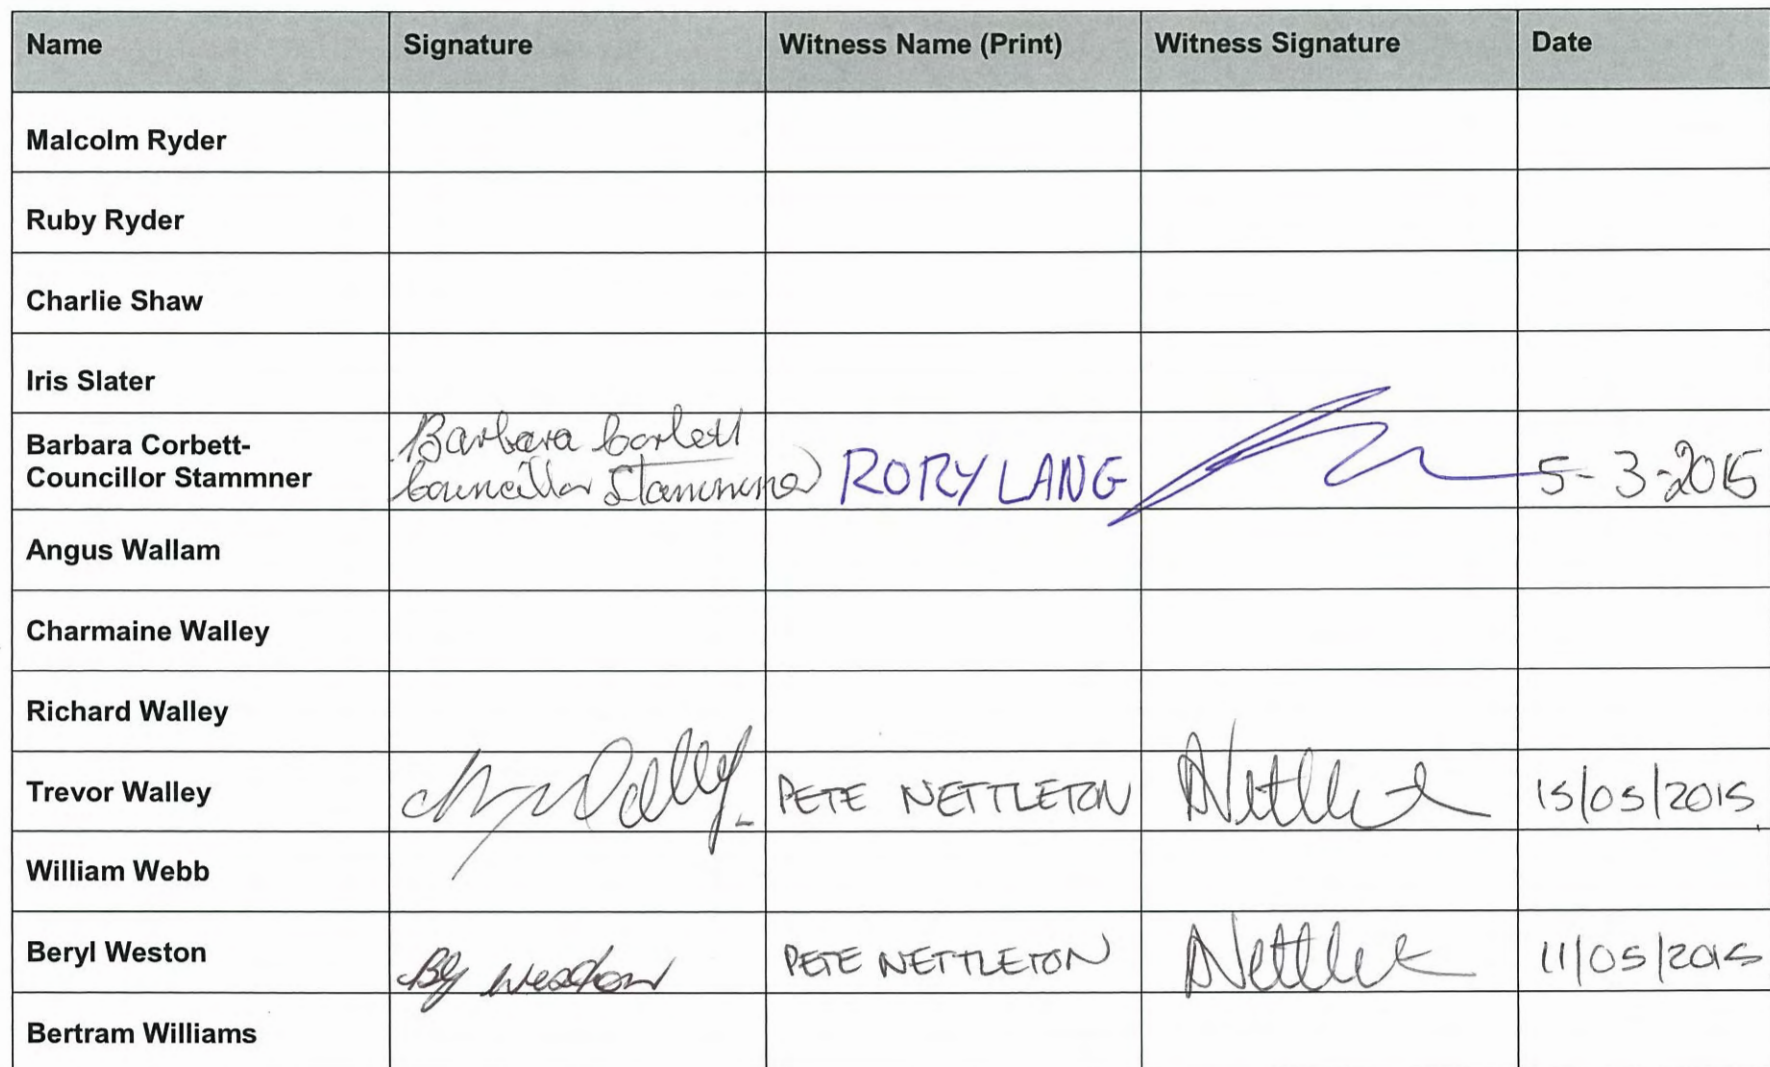 Name Signature Witness Name (Print) Witness Signature Date
Malcolm Ryder
Ruby Ryder
Charlie Shaw
Iris Slater
Barbara Corbett-
Councillor Stammner
Barbara Corbett
Councillor Stammner
RORY LANG
5-3-2015
Angus Wallam
Charmaine Walley
Richard Walley
Trevor Walley
Walley
PETE NETTLETON
15/05/2015
William Webb
Beryl Weston
Weston
PETE NETTLETON
11/05/2015
Bertram Williams